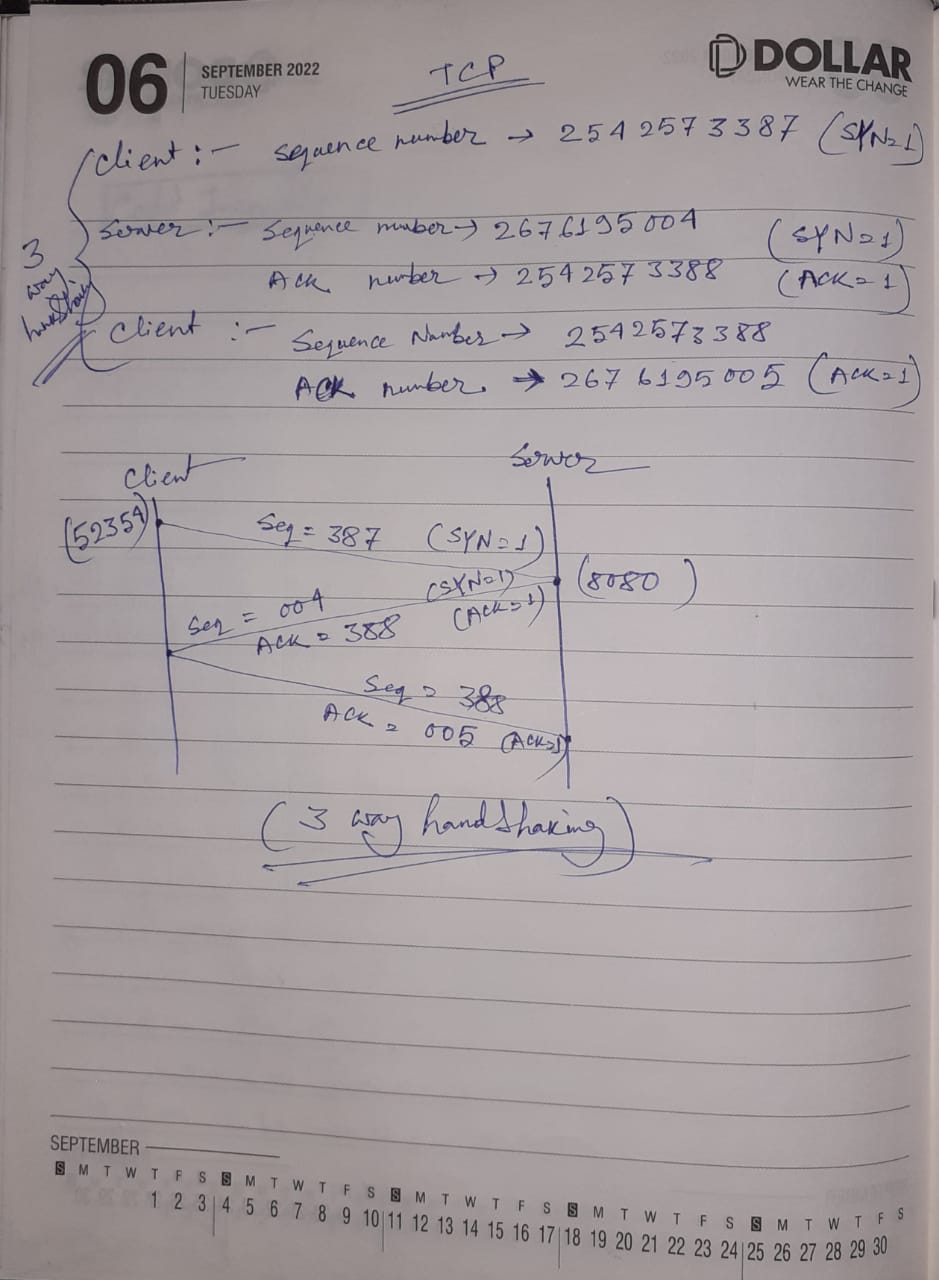 06
SEPTEMBER 2022
TUESDAY
TCP
DOLLAR
WEAR THE CHANGE
Client :- sequence number → 2542573387 (SYN=1)
Server :- Sequence number → 2676195004 (SYN=1)
Ack number → 2542573388 (ACK=1)
Client :- Sequence Number → 2542573388
ACK number → 2676195005 (ACK=1)
3
way
handshaking
Client
Server
(52354)
Seq = 387 (SYN=1)
(8080)
(SYN=1)
Seq = 004
(ACK=1)
ACK = 388
Seq = 388
ACK = 005 (ACK=1)
(3 way handshaking)
SEPTEMBER
S M T W T F S S M T W T F S S M T W T F S S M T W T F S S M T W T F S
1 2 3 4 5 6 7 8 9 10 11 12 13 14 15 16 17 18 19 20 21 22 23 24 25 26 27 28 29 30